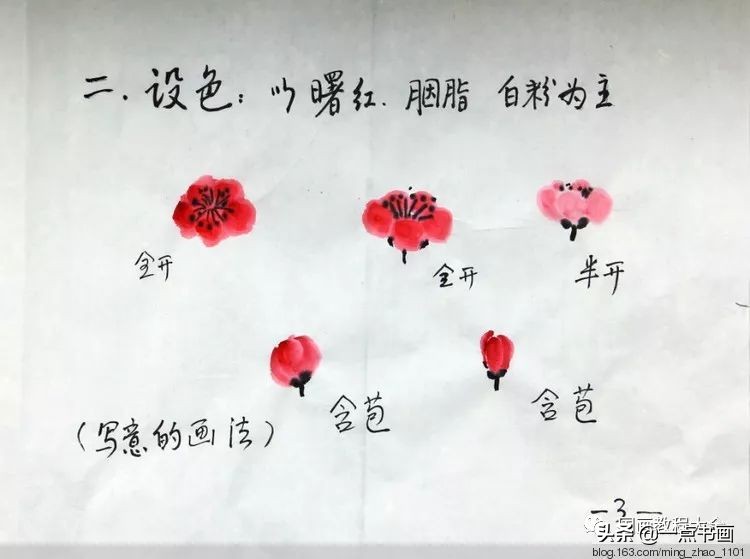 二．设色：以曙红．胭脂 白粉为主
全开
全开
半开
含苞
含苞
（写意的画法）
—3—
国画教程大全
头条@一点书画
blog.163.com/ming_zhao_1101